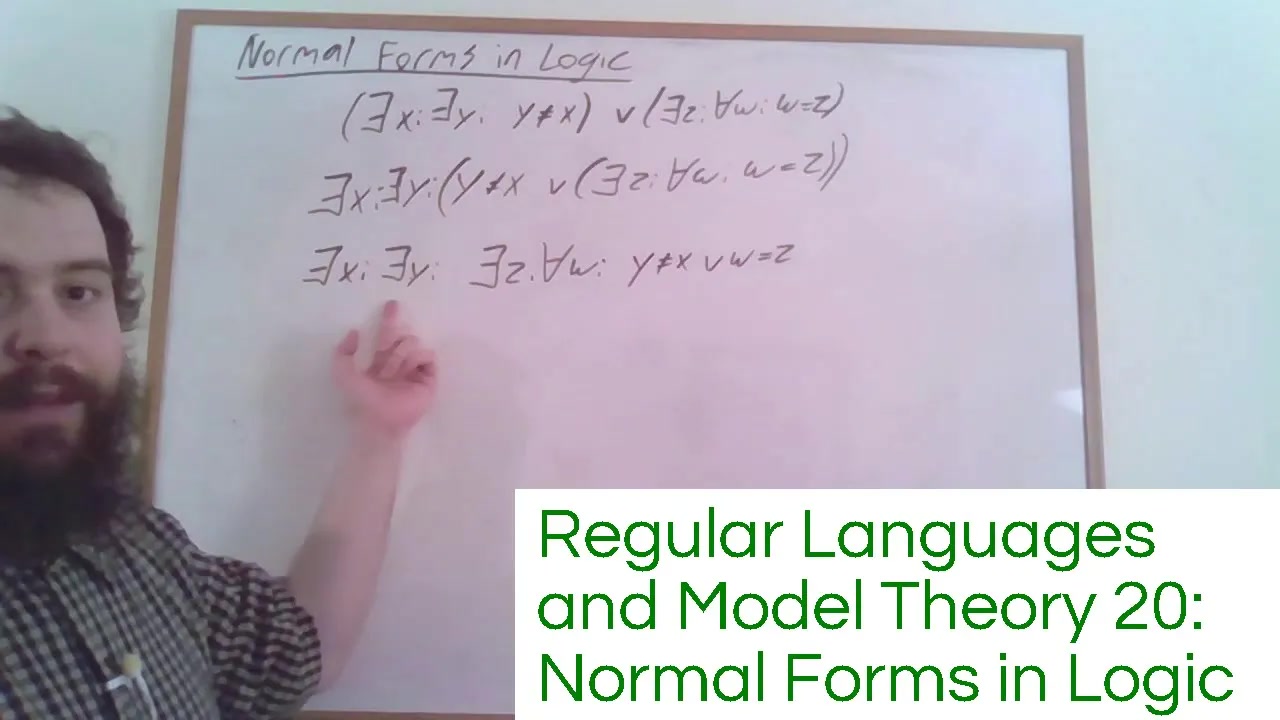 Normal Forms in Logic
(∃x: ∃y: y≠x) ∨ (∃z: ∀w: w=z)
∃x: ∃y: (y≠x ∨ (∃z: ∀w: w=z))
∃x: ∃y: ∃z: ∀w: y≠x ∨ w=z
Regular Languages
and Model Theory 20:
Normal Forms in Logic